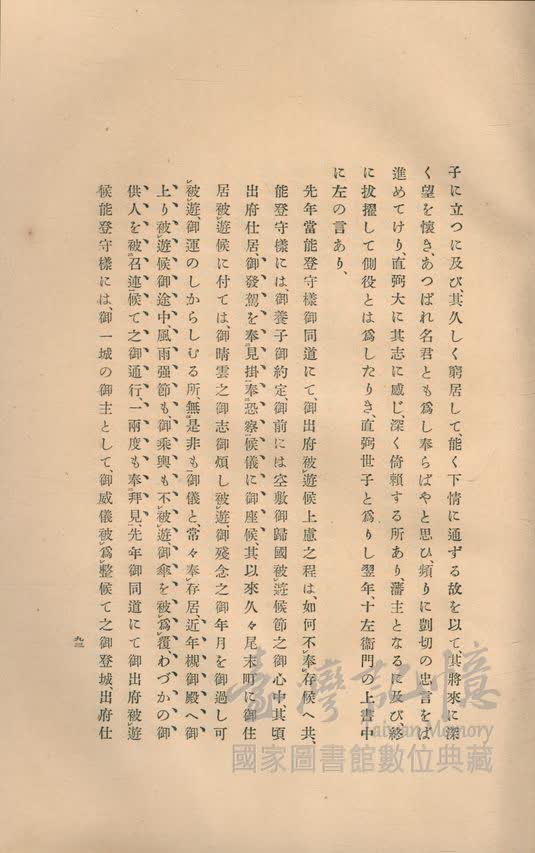 子に立つに及び、其久しく窮居して、能く下情に通ずる故を以て、其將來に深
く望を懷き、あつばれ名君とも爲し奉らばやと思ひ、頻りに剴切の忠言をば
進めてけり、直弼大に其志に感じ、深く倚賴する所あり、藩主となるに及び終
に拔擢して側役とは爲したりき、直弼世子と爲りし翌年、十左衞門の上書中
に左の言あり、
先年當能登守樣御同道にて、御出府被遊候上慮之程は、如何不奉存候へ共、
能登守樣には、御養子御約定、御前には空敷御歸國被遊候節之御心中其頃
出府仕居、御發駕を奉見掛奉恐察候儀に御座候、其以來久々尾末町に御住
居被遊候に付ては、御晴雲之御志御煩し被遊、御殘念之御年月を御過し可
被遊、御運のしからしむる所、無是非も御儀と、常々奉存居、近年槻御殿へ御
上り被遊候御途中、風雨强節も、御乘輿も不被遊御傘を被爲覆、わづかの御
供人を被召連候て之御通行、一兩度も奉拜見、先年御同道にて御出府被遊
候能登守樣には、御一城の御主として、御威儀被爲整候て之御登城、出府仕
九三
臺灣記憶
Taiwan Memory
國家圖書館數位典藏